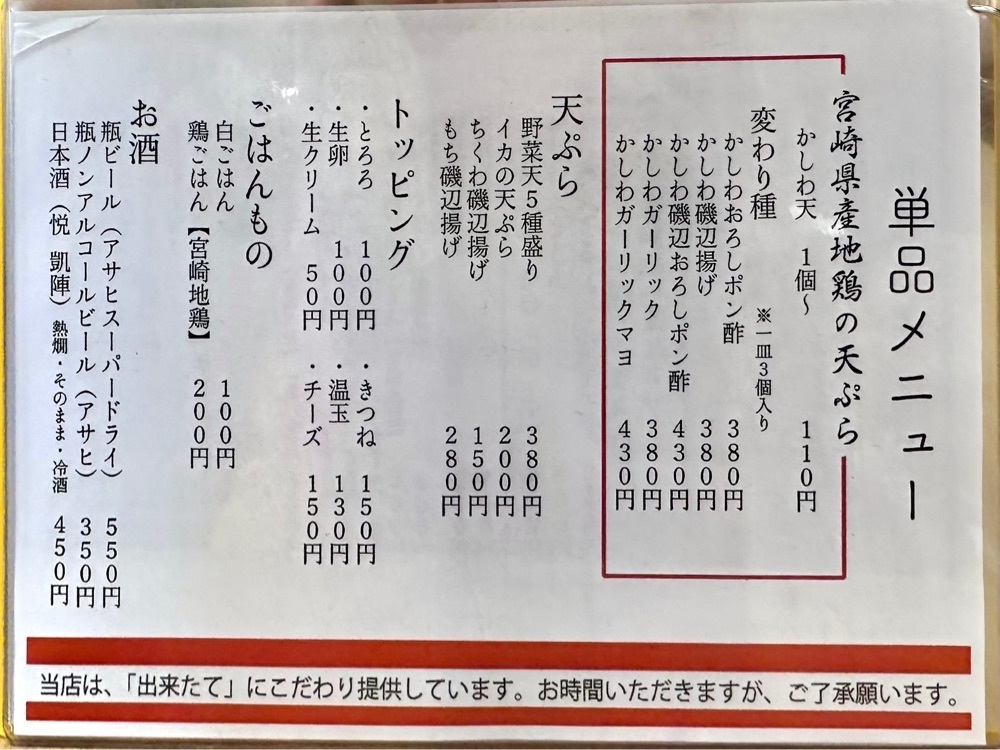 単品メニュー
宮崎県産地鶏の天ぷら
かしわ天 1個〜 110円
変わり種 ※一皿3個入り
かしわおろしポン酢 380円
かしわ磯辺揚げ 380円
かしわ磯辺おろしポン酢 430円
かしわガーリック 380円
かしわガーリックマヨ 430円
天ぷら
野菜天5種盛り 380円
イカの天ぷら 200円
ちくわ磯辺揚げ 150円
もち磯辺揚げ 280円
トッピング
・とろろ 100円 ・きつね 150円
・生卵 100円 ・温玉 130円
・生クリーム 50円 ・チーズ 150円
ごはんもの
白ごはん 100円
鶏ごはん【宮崎地鶏】 200円
お酒
瓶ビール(アサヒスーパードライ) 550円
瓶ノンアルコールビール(アサヒ) 350円
日本酒(悦 凱陣)熱燗・そのまま・冷酒 450円
当店は、「出来たて」にこだわり提供しています。お時間いただきますが、ご了承願います。